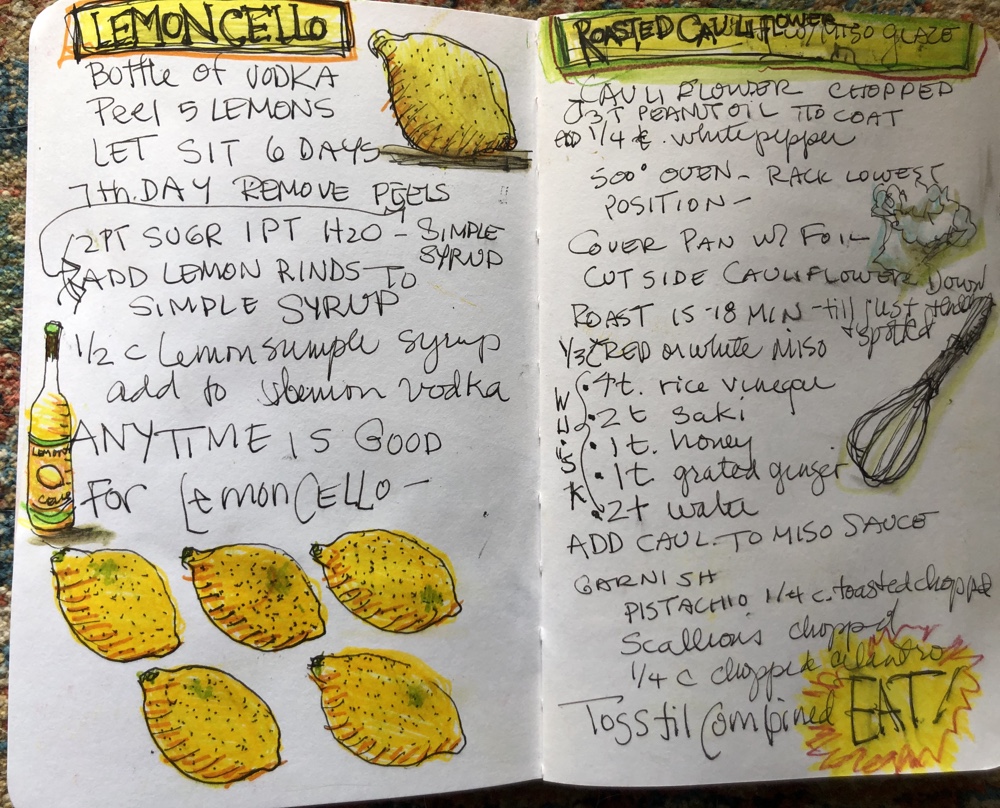 LEMONCELLO
Bottle of VODKA
Peel 5 LEMONS
LET SIT 6 DAYS
7th. DAY REMOVE PEELS
2PT SUGR 1PT H2O - SIMPLE SYRUP
ADD LEMON RINDS TO
SIMPLE SYRUP
1/2 c Lemon simple syrup
add to lemon vodka
ANYTIME IS GOOD
For LemonCELLO -
ROASTED CAULIFLOWER W/MISO GLAZE
CAULIFLOWER CHOPPED
3T PEANUT OIL TO COAT
1/4 t. white pepper
500° OVEN - RACK LOWEST
POSITION -
COVER PAN W/ FOIL
CUT SIDE CAULIFLOWER Down
ROAST 15-18 MIN - till just tender
+ spotted
1/3 C RED or white MISO
WHISK
4t. rice vinegar
2t saki
1t. honey
1t grated ginger
2t water
ADD CAUL. TO MISO SAUCE
GARNISH
PISTACHIO 1/4 c. toasted chopped
Scallions chopped
1/4 c chopped cilantro
Toss til Combined
EAT!